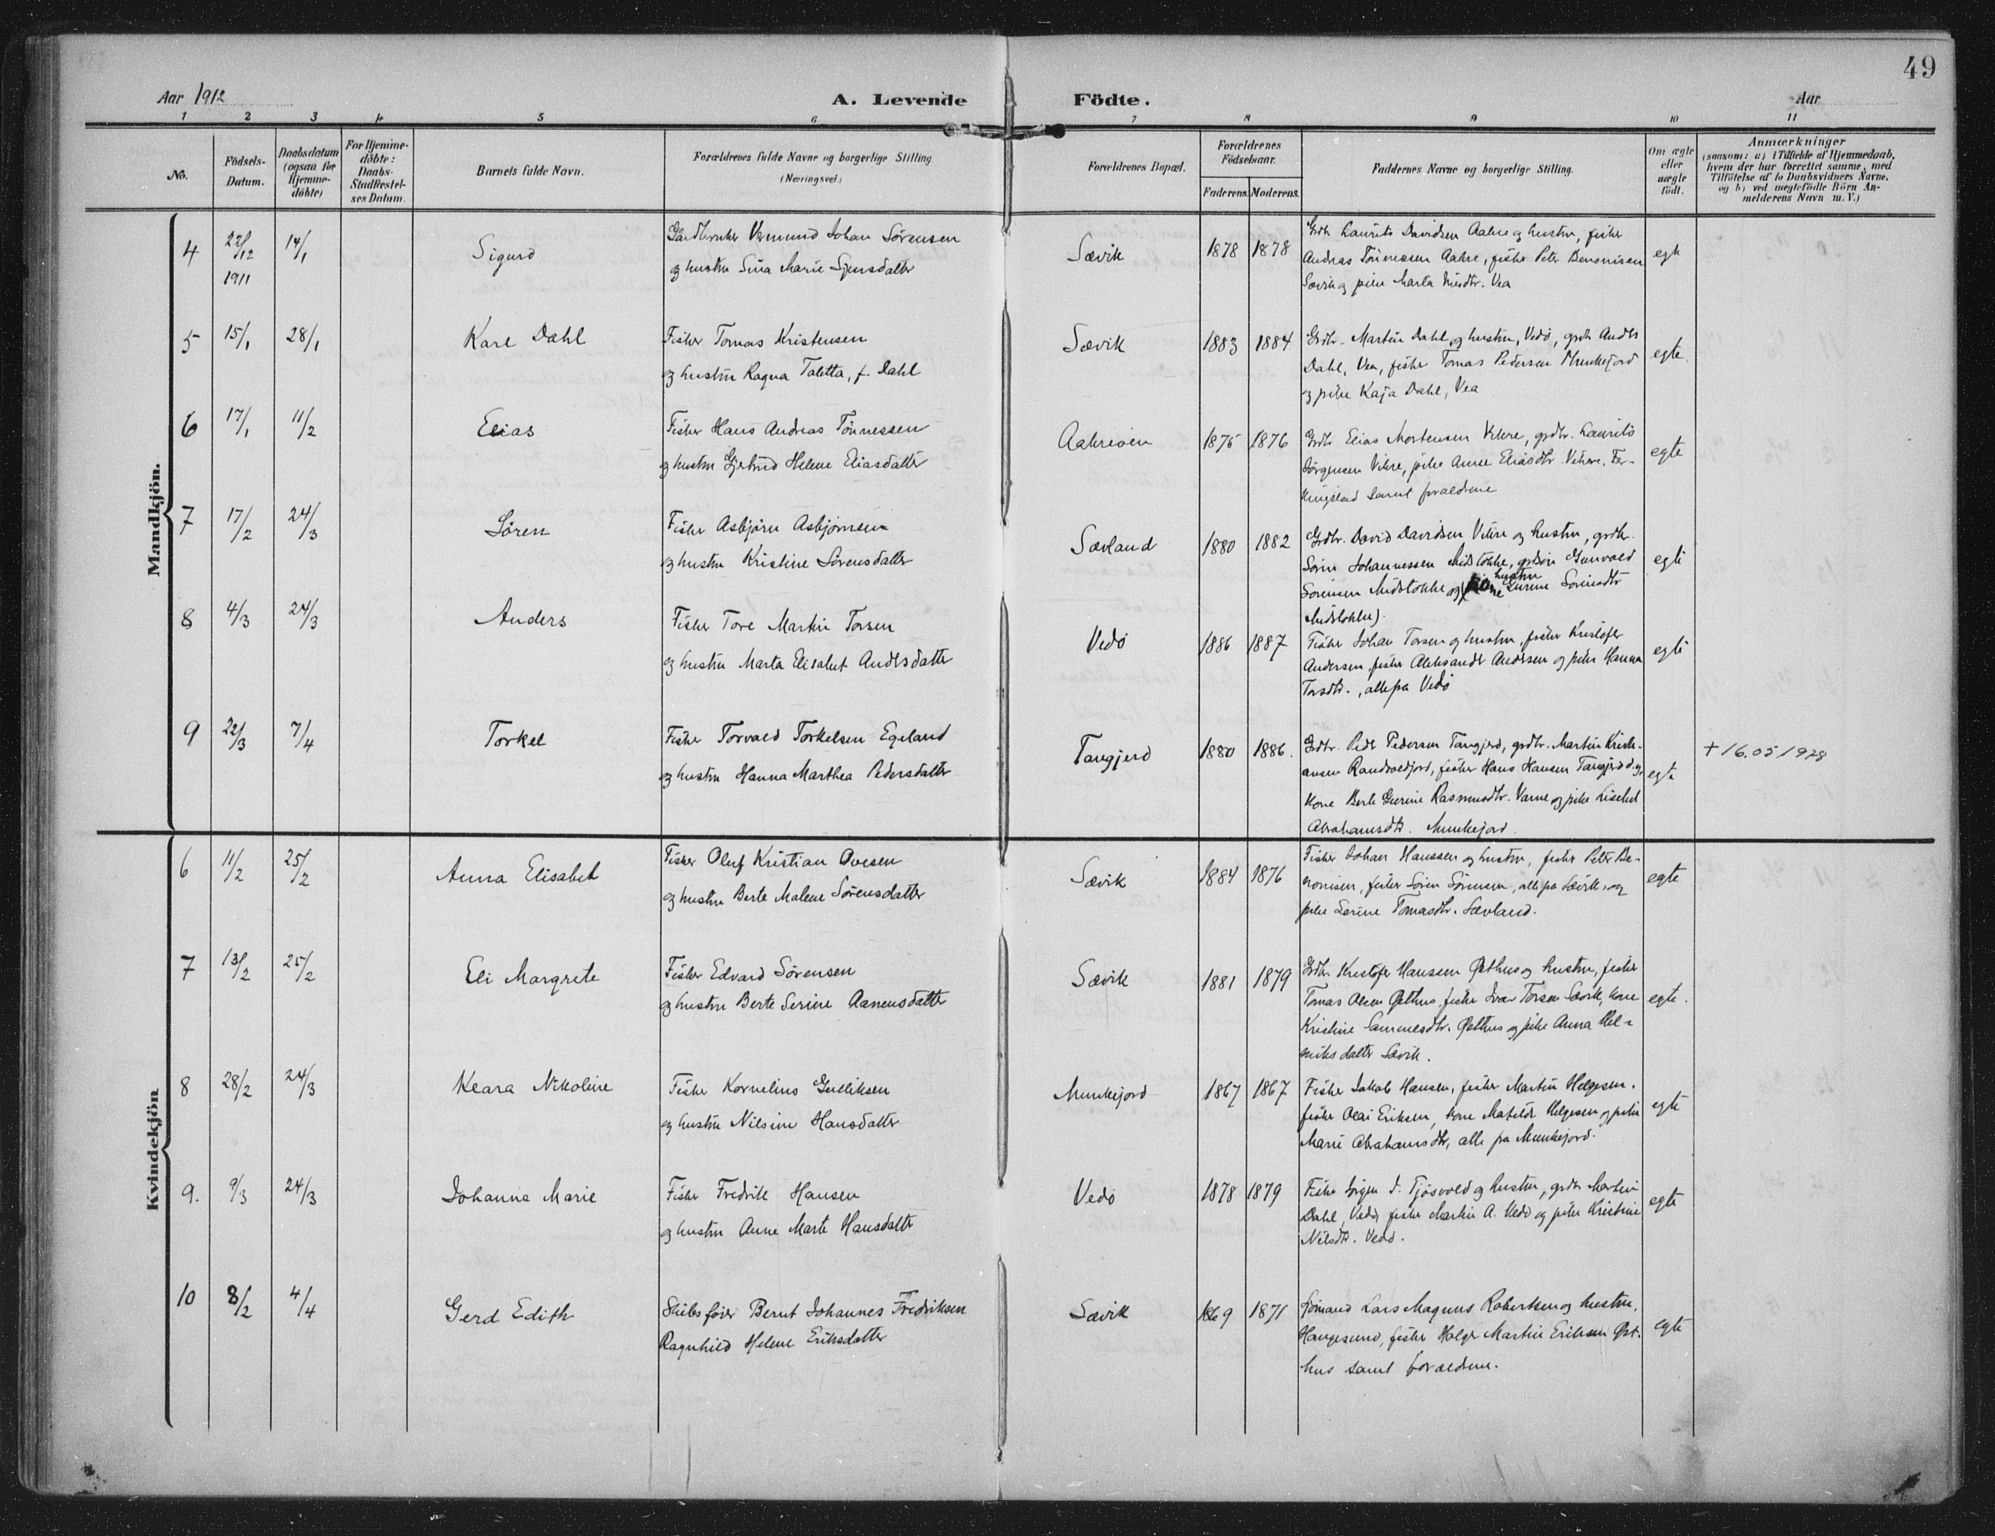 49
Aar 1912
A. Levende
Födte.
Aar
1 2 3 4 5 6 7 8 9 10 11
No.
Födsels-
Datum.
Daabsdatum
(ogsaa for
Hjemme-
döbte)
For Hjemme-
döbte:
Daabs-
Stadfæstel-
ses Datum.
Barnets fulde Navn.
Forældrenes fulde Navne og borgerlige Stilling
(Næringsvei.)
Forældrenes Bopæl.
Forældrenes
Födselsaar.
Faderens. Moderens.
Faddernes Navne og borgerlige Stilling.
Om ægte
eller
uægte
födt.
Anmærkninger
(saasom: a) i Tilfælde af Hjemmedaab,
hvem der har forrettet samme, med
Tilföielse af to Daabsvidners Navne,
og b) ved uægtefödte Börn An-
melderens Navn m. V.)
Mandkjön.
4
22/12
1911
14/1
Sigurd
Johan Sørensen
og hustru Sina Marie
Sævik
1878 1878
Grdbr. Laurits Davidsen Aakre og hustru, fisker
Andreas Tönnessen Aakre, fisker Peter Benonisen
Sævik og pike Marta Vea
egte
5
15/1
28/1
Karl Dahl
Fisker Tomas Kristensen
og hustru Ragna Taletta, f. Dahl
Sævik
1883 1884
Grdbr. Martin Dahl og hustru, Vedö, grdbr. Anders
Dahl, Vea, fisker Tomas Pedersen Munkejord
og pike Kaja Dahl, Vea
egte.
6
17/1
11/2
Elias
Fisker Hans Andreas Tönnessen
og hustru Gjertrud Helene Eliasdatter
Aakreöen
1875 1876
Grdbr Elias Mortensen Vikre, grdbr. Laurits
Jörgensen Vikre, pike Anne Eliasdtr. Fer-
kingstad samt forældrene
egte
7
17/2
24/3
Sören
Fisker Asbjörn Asbjörnsen
og hustru Kristine Sørensdatter
Sævland
1880 1882
Grdbr. David Davidsen Vikre og hustru, grdbr.
Sören Johannessen Midstokke, Gunvald
Sörensen Midstokke og hustru Sörensdtr
Midstokke).
egte
8
4/3
24/3
Anders
Fisker Tore Martin Torsen
og hustru Marta Elisabet Andersdatter
Vedö
1886 1887
Fisker Johan Torsen og hustru, fisker Kristofer
Andersen, fisker Aleksander Andersen og pike Hanna
Torsdtr., alle paa Vedö
egte
9
22/3
7/4
Torkel
Fisker Torvald Torkelsen Egeland
og hustru Hanna Marthea Pedersdatter
Tangjerd
1880 1886.
Grdbr. Peder Pedersen Tangjerd, grdbr. Martin Kristi-
ansen fisker Hans Hansen Tangjerd og
kone Berte Gurine Rasmusdtr. Varne og pike Lisebet
Abrahamsdtr. Munkejord.
egte
+ 16.05.1928
Kvindekjön
6
11/2
25/2
Anna Elisabet
Fisker Oluf Kristian Ovesen
og hustru Berte Malene Sörensdatter
Sævik
1884 1876
Fisker Johan Hanssen og hustru, fisker Peter Be-
nonisen, fisker Sören Sörensen, alle paa Sævik, og
pike Serine Tomasdtr. Sævland.
egte
7
13/2
25/2
Eli Margrete
Fisker Edvard Sörensen
og hustru Berte Serine Aanensdatter
Sævik
1881 1879
Grdbr Kristofer Hanssen Østhus og hustru, fisker
Tomas Olsen Østhus, fisker Ivar Torsen Sævik, kone
Kristine Østhus og pike Anna Hel-
Sævik.
egte.
8
28/2
24/3
Klara Nikoline
Fisker Kornelius Gulliksen
og hustru Nilsine Hansdatter
Munkejord
1867 1867
Fisker Jakob Hansen, fisker Martin Helgesen.
fisker Olai Eriksen, kone Matilde Helgesen og pike
Marie Abrahamsdtr, alle paa Munkejord.
egte
9.
9/3
24/3
Johanna Marie
Fisker Fredrik Hansen
og hustru Anne Marte Hansdatter
Vedö
1878 1879
Fisker Jörgen J. Tjösvold og hustru, grdbr Martin
Dahl, Vedö, fisker Martin A. Vedö og pike Kristine
Nilsdtr. Vedö.
egte
10
8/2
4/4
Gerd Edith
Skibsförer Bernt Johannes Fredriksen
Ragnhild Helene Eriksdatter
Sævik
1869 1871
Sömand Lars Magnus Robertsen og hustru,
Haugesund, fisker Holger Martin Eriksen Øst-
hus samt forældrene.
egte